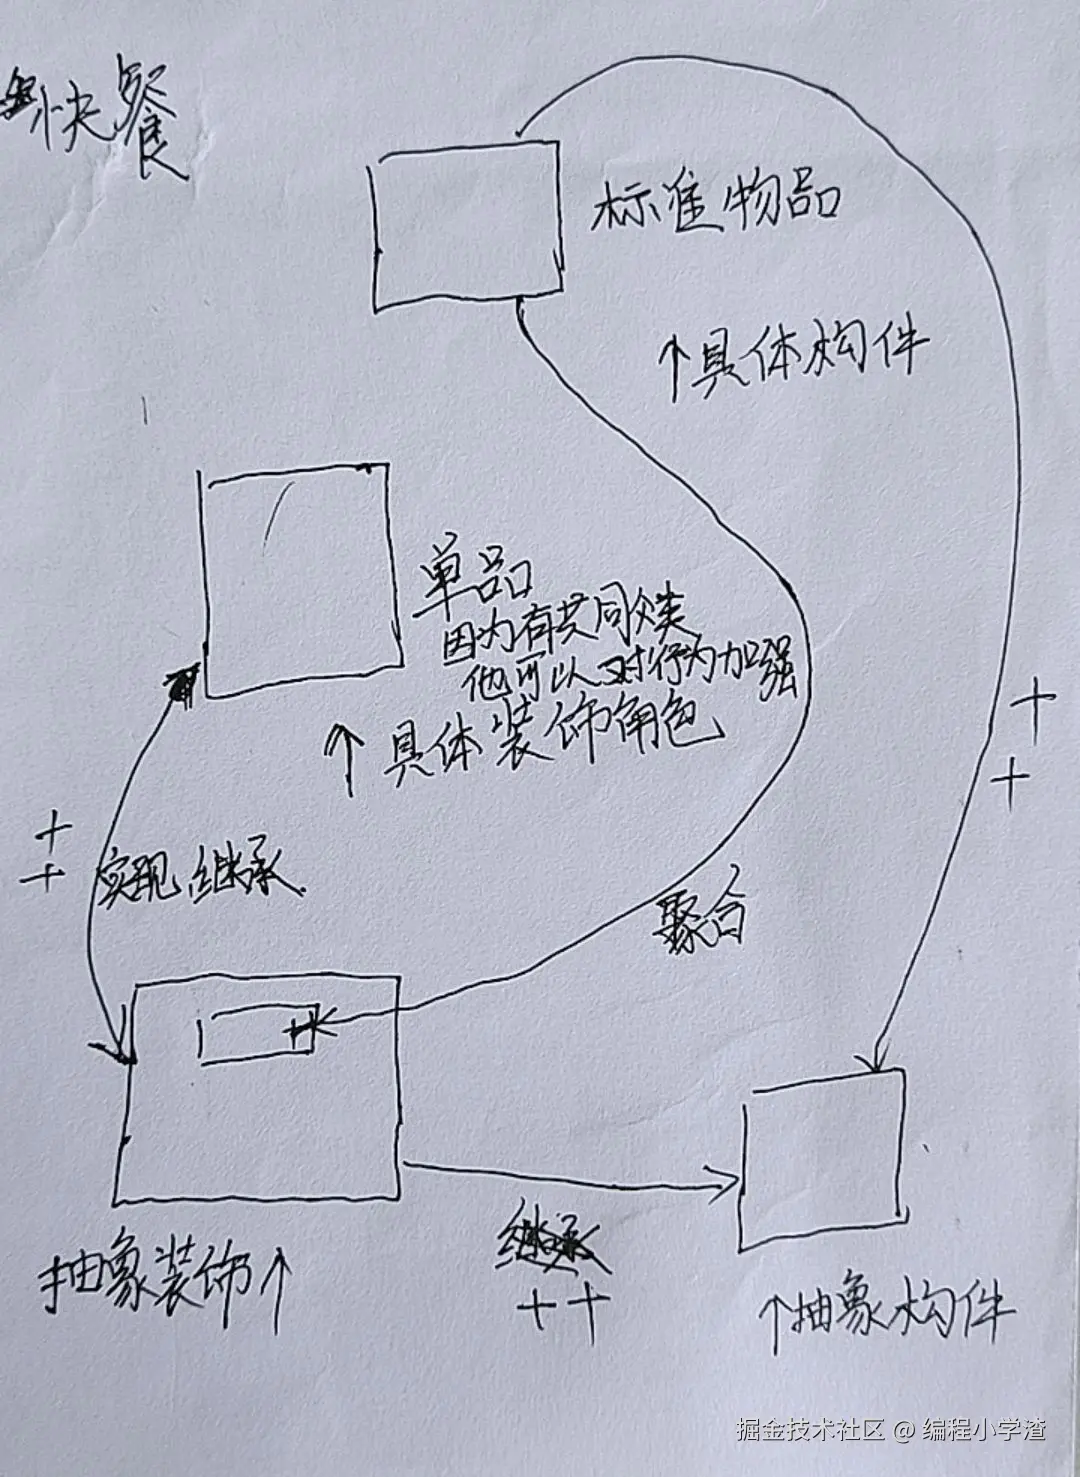 快餐
标准物品
↑具体构件
单品
因为有共同父类
他可以对行为加强
↑具体装饰角色
+
+
+
+
实现 继承
聚合
继承
++
抽象装饰↑
↑抽象构件
掘金技术社区 @ 编程小学渣